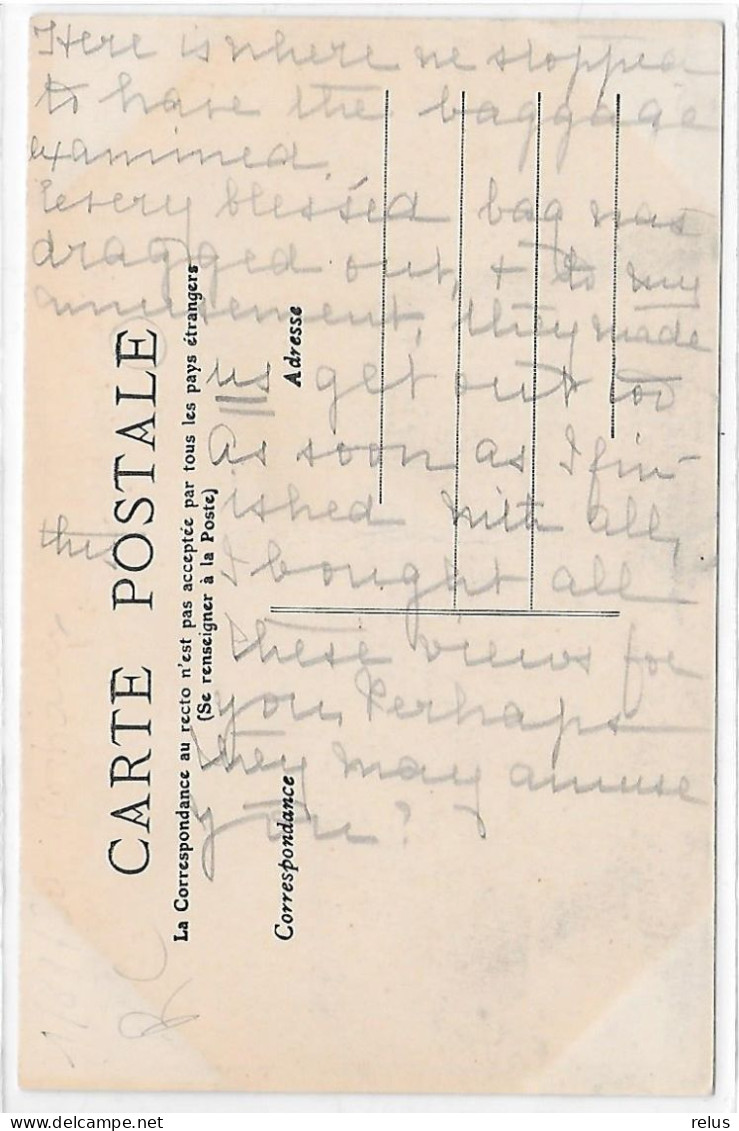 Here is where we stopped
to have the baggage
examined.
Every blessed bag was
dragged out, + to my
amusement, they made
us get out too
As soon as I fin-
ished with all,
this
I bought all
these views for
you. Perhaps
they may amuse
you?
CARTE POSTALE
La Correspondance au recto n'est pas acceptée par tous les pays étrangers
(Se renseigner à la Poste)
Correspondance
Adresse
relus